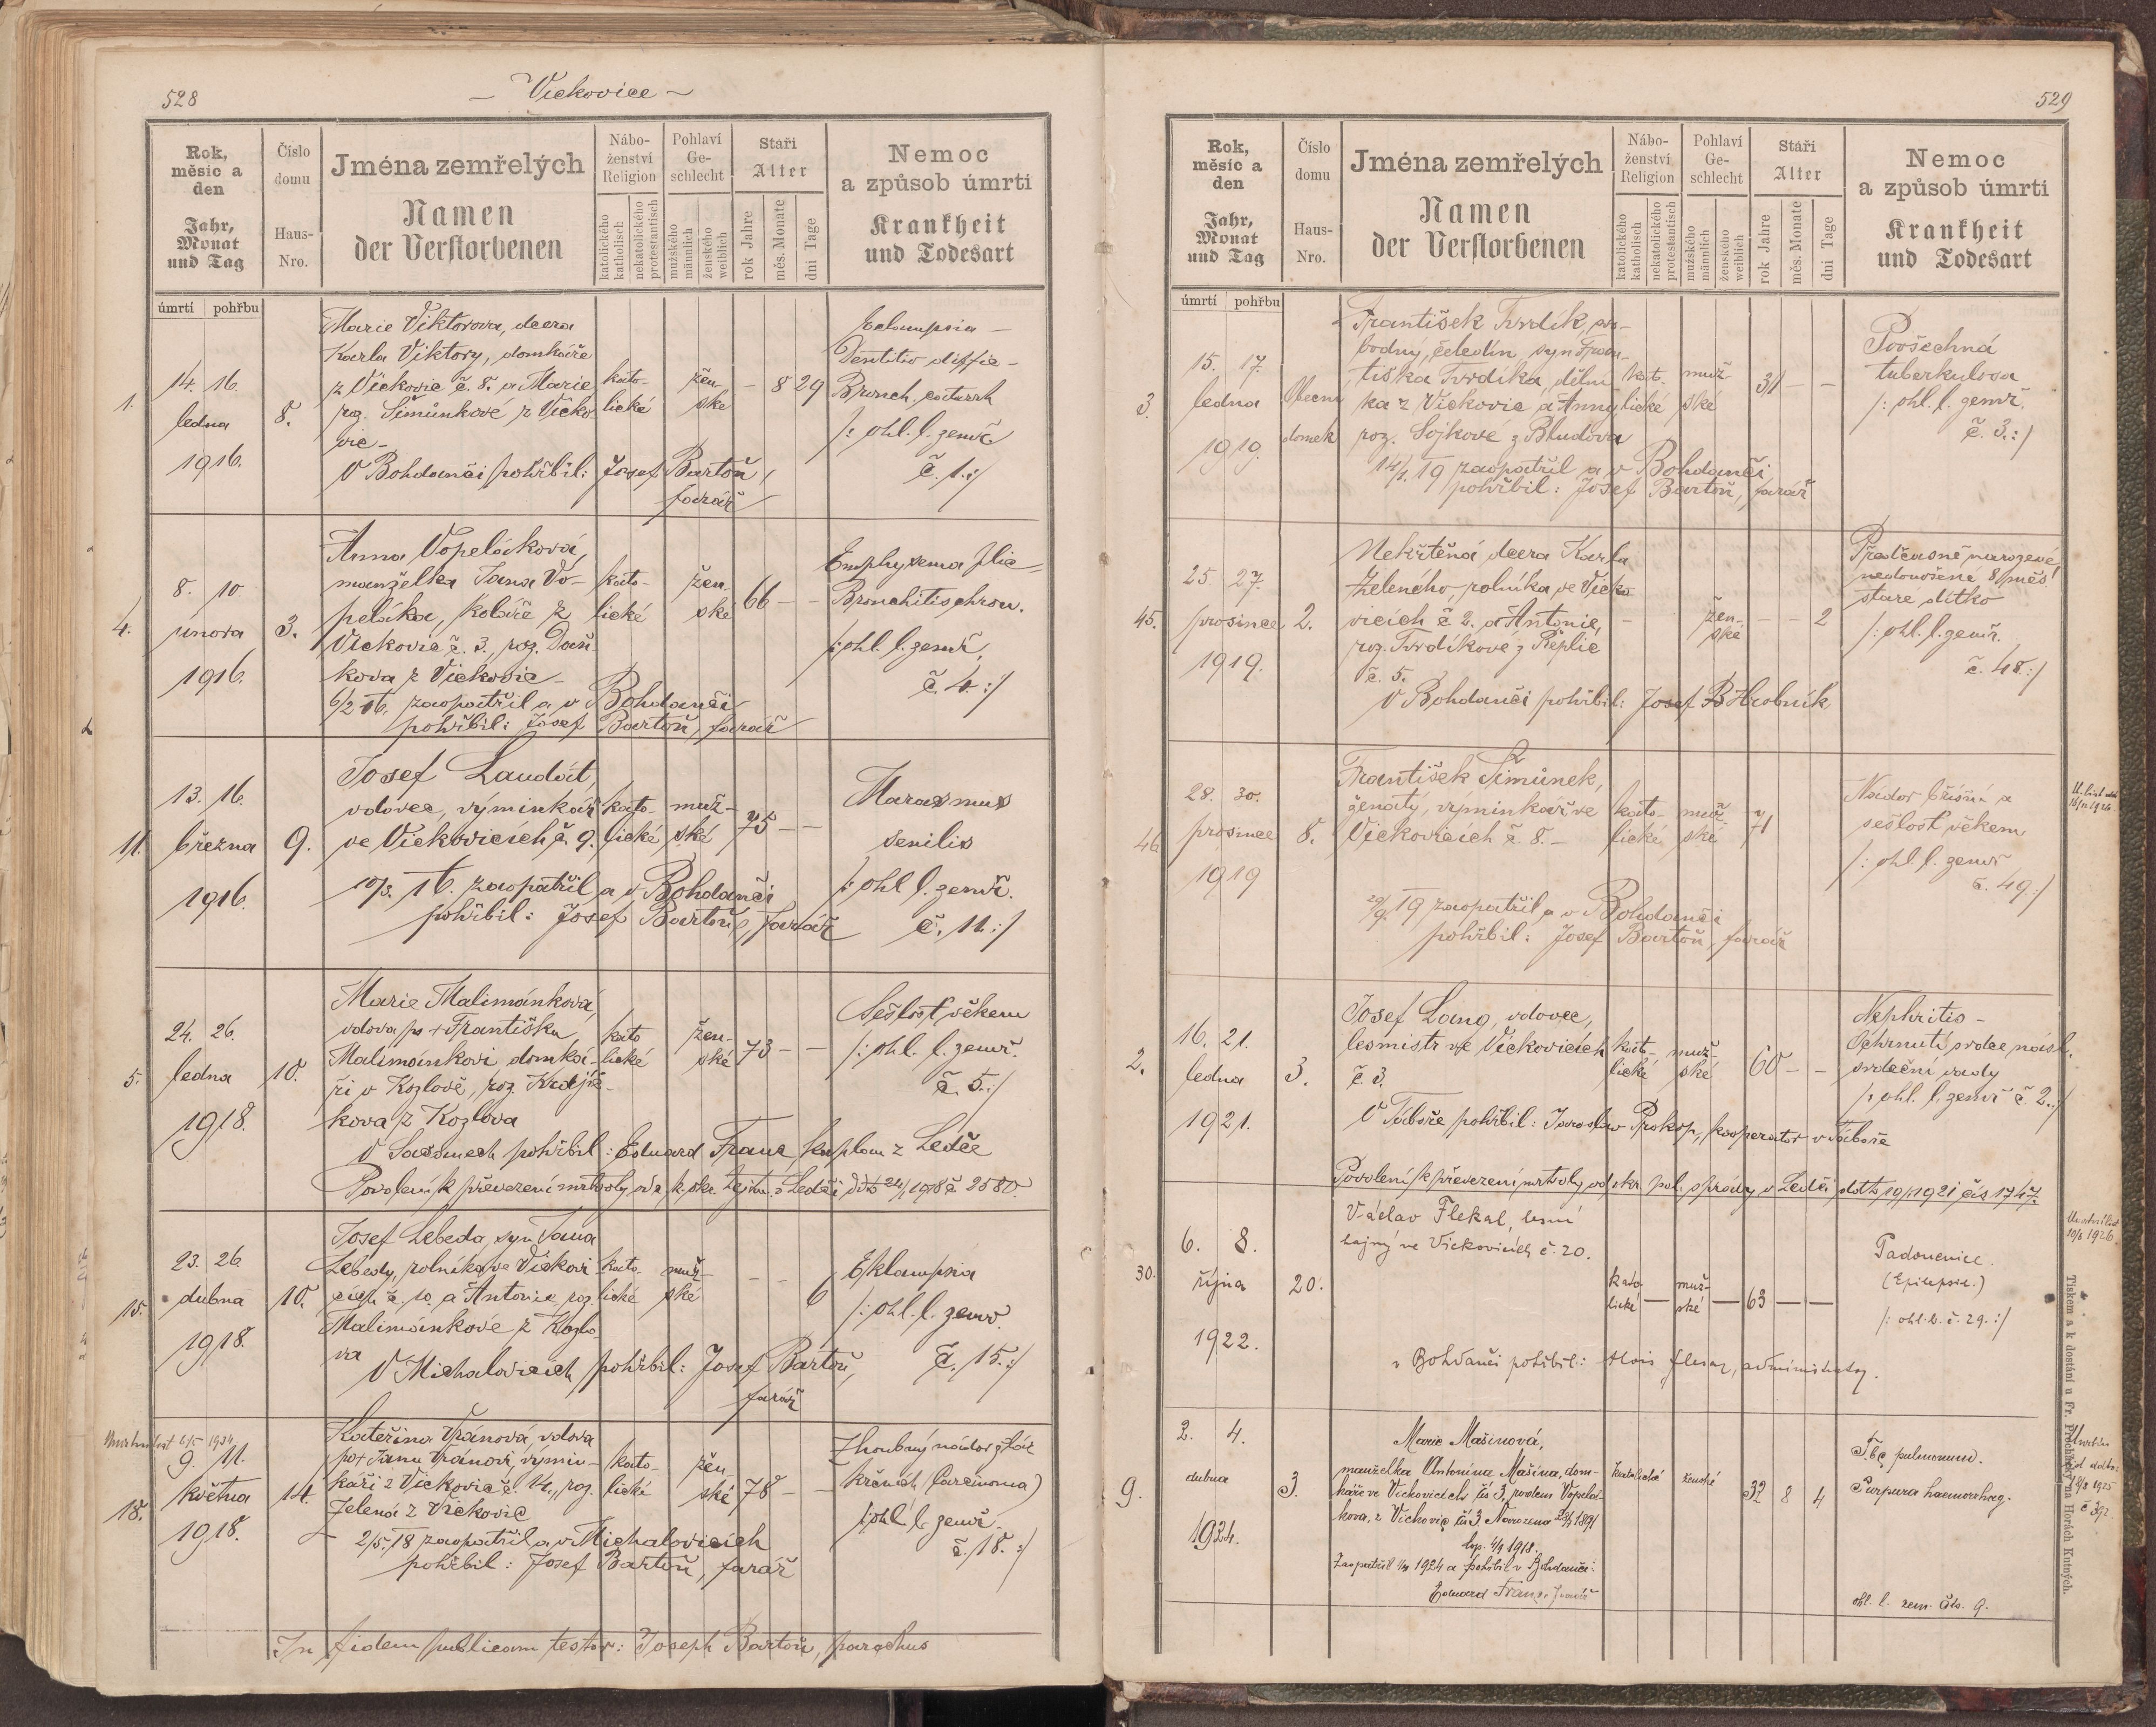 528
Vickovice
Rok, měsíc a den
Jahr, Monat und Tag
Číslo domu
Haus-Nro.
Jména zemřelých
Namen der Verstorbenen
Nábo-ženství
Religion
katolického
katholisch
nekatolického
protestantisch
Pohlaví
Ge-schlecht
mužského
männlich
ženského
weiblich
Stáří
Alter
rok Jahre
měs. Monate
dni Tage
Nemoc a způsob úmrtí
Krankheit und Todesart
úmrtí pohřbu
1.
14. 16.
ledna
1916.
8.
Marie Viktorova, dcera
Karla Viktory, domkáře
z Vickovic č. 8. a Marie
roz. Šimůnkové z Vicko
vic
V Bohdanči pohřbil: Josef Bartoň,
farář
kato-
lické
žen-
ské
- 8 29
Eclampsia -
Dentitio diffic -
Bronch. catarrh
/: ohl. l. zemř.
č. 1. :/
4.
8. 10.
února
1916.
3.
Anna Vopeláková,
manželka Jana Vo-
peláka, koláře z
Vickovic č. 3., roz. Daň
kova z Vickovic
6/2 16. zaopatřil a v Bohdanči
pohřbil: Josef Bartoň, farář
kato-
lické
žen-
ské
66 - -
Emphysema plic
Bronchitis chron.
/: ohl. l. zemř.
č. 4. :/
11.
13. 16.
března
1916.
9.
Josef Laudát,
vdovec, výminkář
ve Vickovicích č. 9.
10/3. 16. zaopatřil a v Bohdanči
pohřbil: Josef Bartoň, farář
kato-
lické
muž-
ské
75 - -
Marasmus
senilis
/: ohl l. zemř.
č. 11. :/
5.
24. 26.
ledna
1918.
10.
Marie Malimánková,
vdova po + Františku
Malimánkovi domká-
ři v Kozlově, roz.
kova z Kozlova
pohřbil: Eduard Franc, kaplan z Ledče
Povolení k převezení mrtvoly od c. k. okr. hejtm. v Ledči ddto 24/1 1918 č 2580.
kato
lické
žen-
ské
73 - -
Sešlost věkem
/: ohl. l. zemř.
č. 5. :/
15.
23. 26.
dubna
1918.
10.
Josef Lebeda, syn Jana
Lebedy, rolníka ve Vickovi
cích č. 10. a Antonie roz.
Malimánkové z Kozlo
va
V Michalovicích pohřbil: Josef Bartoň,
farář
kato-
lické
muž-
ské
- - 6
Eklampsia
/: ohl. l. zemř.
č. 15. :/
18.
9. 11.
května
1918.
14.
Kateřina Vránová, vdova
po + Janu Vránovi, výmin-
káři z Vickovic č. 14., roz.
Zelená z Vickovic
2/5. 18 zaopatřil a v Michalovicích
pohřbil: Josef Bartoň, farář
kato-
lické
žen-
ské
78 - -
Zhoubný nádor žláz
krčních (Carcinoma)
/: ohl. l. zemř.
č. 18. :/
In fidem publicam testor: Joseph Bartoň, parochus
529
Rok, měsíc a den
Jahr, Monat und Tag
Číslo domu
Haus-Nro.
Jména zemřelých
Namen der Verstorbenen
Nábo-ženství
Religion
katolického
katholisch
nekatolického
protestantisch
Pohlaví
Ge-schlecht
mužského
männlich
ženského
weiblich
Stáří
Alter
rok Jahre
měs. Monate
dni Tage
Nemoc a způsob úmrtí
Krankheit und Todesart
úmrtí pohřbu
3.
15. 17.
ledna
1919.
Obecní
domek
František Tvrdík, svo-
bodný, čeledín, syn Fran-
tiška Tvrdíka, dělní
ka z Vickovic a Anny
roz. Sojkové z Bludova
14/1. 19 zaopatřil a v Bohdanči
pohřbil: Josef Bartoň, farář
kato-
lické
muž-
ské
31 - -
Povšechná
tuberkulosa
/: ohl. l. zemř.
č. 3. :/
45.
25. 27.
prosince
1919.
2.
Nekřtěná dcera Karla
Zeleného, rolníka ve Vicko
vicích č 2. a Antonie,
roz. Tvrdíkové z Řeplic
č. 5.
V Bohdanči pohřbil: Josef Hrobník
-
žen-
ské
- - 2
Předčasně narozené,
nedonošené 8 měs.
staré dítko
/: ohl. l. zemř.
č. 48. :/
46
28. 30.
prosince
1919
8.
František Šimůnek,
ženatý, výminkář ve
Vickovicích č. 8. -
19 zaopatřil a v Bohdanči
pohřbil: Josef Bartoň, farář
kato-
lické
muž-
ské
71
Nádor břišní a
sešlost věkem
/: ohl. l. zemř
č. 49. :/
2.
16. 21.
ledna
1921.
3.
Josef Lang, vdovec,
lesmistr ve Vickovicích
č 3.
V Táboře pohřbil: Jaroslav Prokop, kooperator v Táboře
Povolení k převezení mrtvoly od okr. pol. správy v Ledči ddto 19/1 1921 čís 1747.
kato-
lické
muž-
ské
60 - -
Nephritis -
Ochrnutí srdce násl.
srdeční vady
/: ohl. l. zemř č. 2. :/
30.
6. 8.
října
1922.
20.
Václav Flekal, lesní
hajný ve Vickovicích č. 20.
v Bohdanči pohřbil: Alois , administrátor.
kato
lické
muž-
ské
63
Padoucnice.
(Epilepsie.)
/: ohl. l. č. 29. :/
9.
2. 4.
dubna
1924.
3.
Marie Mašinová,
manželka Antonína Mašína, dom-
káře ve Vickovicích čís 3, rodem Vopelá-
kova, z Vickovic čís 3. Narozena 1891
kop. 1918.
Zaopatřil 1924 a pohřbil v Bohdanči:
Eduard Franc, farář
katolické
ženské
32 8 4
Tbc pulmonum.
Purpura haemorrhag.
ohl. l. zem. čís. 9.
Tiskem a k dostání u Fr. Procházky na Horách Kutných.